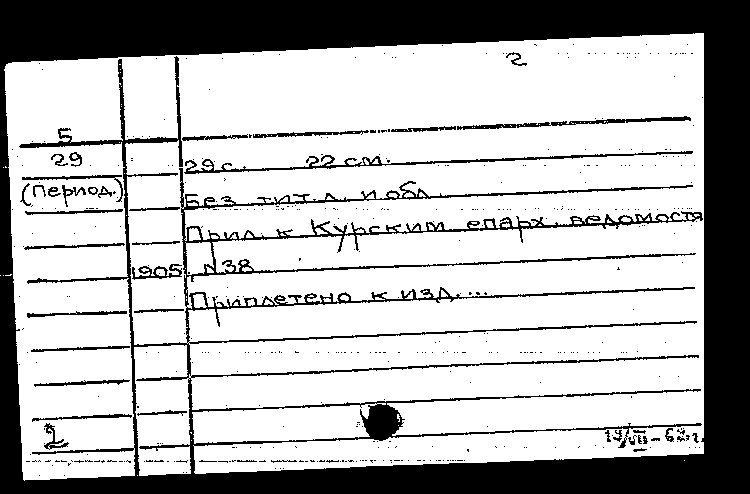 2
5
29 29 с. 22 см.
(период.) Без тит. л. и обл.
Прил. к Курским епарх. ведомостя
1905, N38
Приплетено к изд. ...
2 19/VII-62 г.